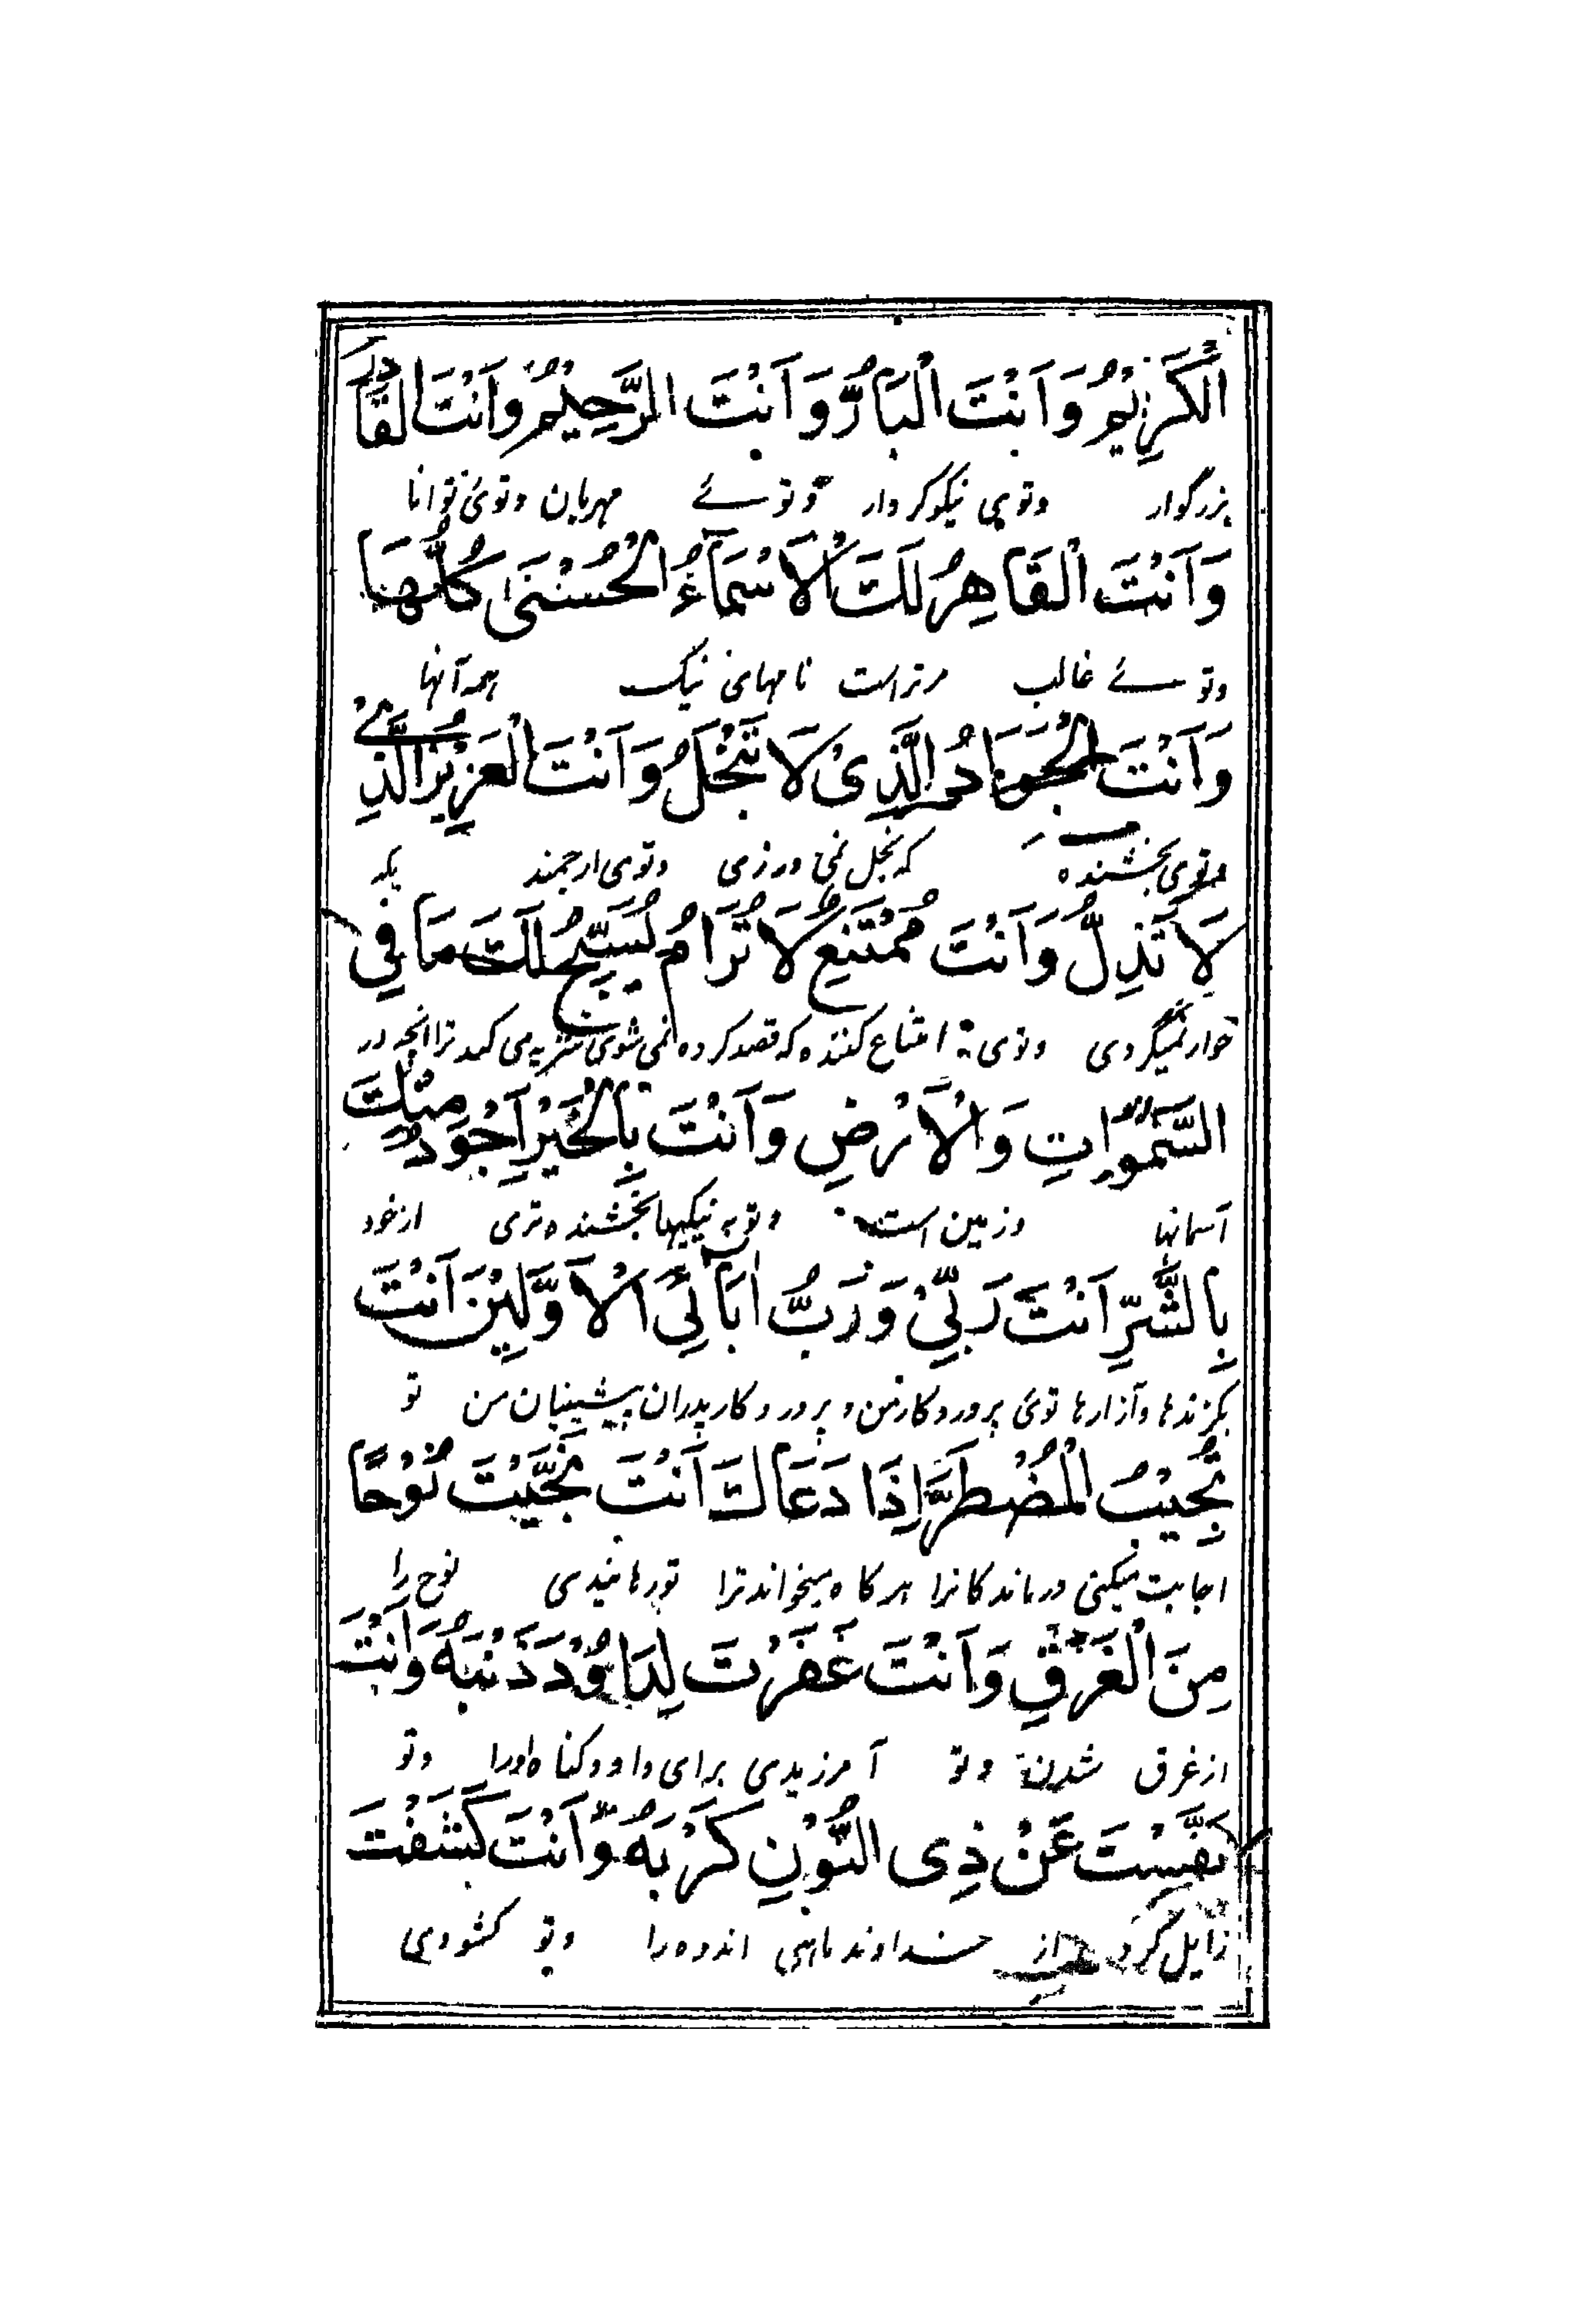 الْكَرِيْمُ وَاَنْتَ الْبَارُّ وَاَنْتَ الرَّحِيْمُ وَاَنْتَ الْقَادِرُ
بزرگوار وتویی نیکوکردار وتوئے مهربان وتوئ توانا
وَاَنْتَ الْقَاهِرُ لَكَ الْاَسْمَآءُ الْحُسْنَىٰ كُلُّهَا
وتوئے غالب مرتراست نامهای نیک همه آنها
وَاَنْتَ الْجَوَادُ الَّذِىْ لَا تَبْخَلُ وَاَنْتَ الْعَزِيْزُ الَّذِىْ
وتوی بخشنده که بخل نمی ورزی وتوی ارجمند یکه
لَا تَذِلُّ وَاَنْتَ مُمْتَنِعٌ لَا تُرَامُ يُسَبِّحُ لَكَ مَا فِي
خوار نمیگردی وتوی امتناع کننده که قصد کرده نمی شوی تنزیه می کند ترا انچه در
السَّمٰوَاتِ وَالْاَرْضِ وَاَنْتَ بِالْخَيْرِ اَجْوَدُ مِنْكَ
آسمانها وزمین است وتو به نیکیها بخشنده تری ازخود
بِالشَّرِّ اَنْتَ رَبِّيْ وَرَبُّ اٰبَآئِىَ الْاَوَّلِيْنَ اَنْتَ
بگزندها وآزارها توئ پروردکارمن وپروردکار پدران پیشینیان من تو
تُجِيْبُ الْمُضْطَرَّ اِذَا دَعَاكَ اَنْتَ نَجَّيْتَ نُوْحًا
اجابت میکنی درماندکانرا هرکاه میخواندترا تورهانیدی نوح را
مِنَ الْغَرَقِ وَاَنْتَ غَفَرْتَ لِدَاوُدَ ذَنْبَهُ وَاَنْتَ
ازغرق شدن وتو آمرزیدی برای داوود کناه اورا وتو
نَفَّسْتَ عَنْ ذِى النُّوْنِ كَرْبَهُ وَاَنْتَ كَشَفْتَ
زایل کردی از خداوند ماهی اندوه را وتو کشودی